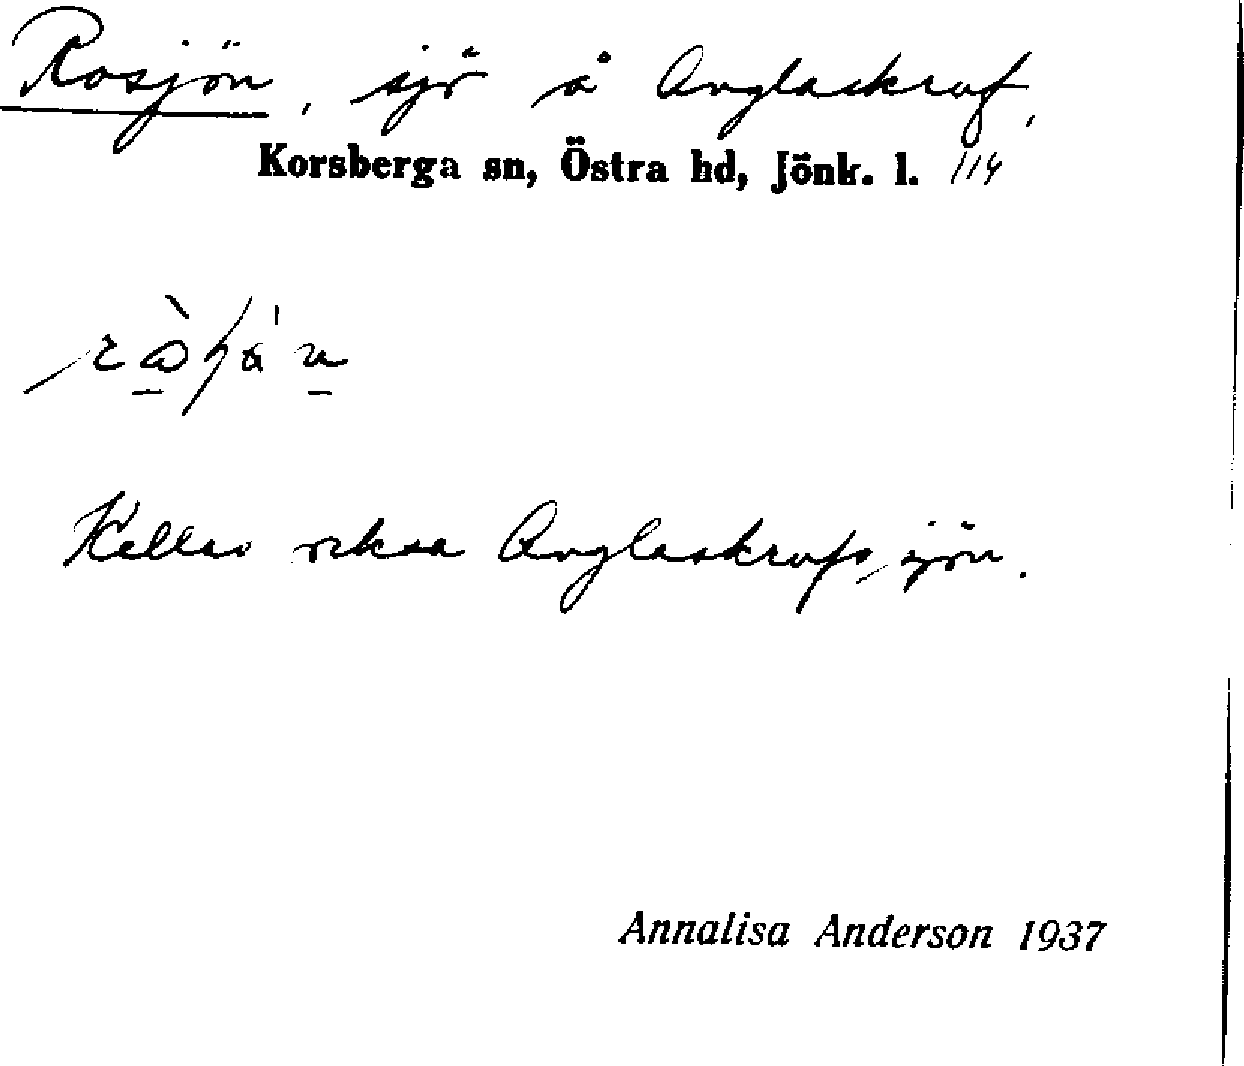 Rosjön, sjö å Anglaskrof,
Korsberga sn, Östra hd, Jönk. l. 114
Kallas också Anglaskrofs-sjön.
Annalisa Anderson 1937